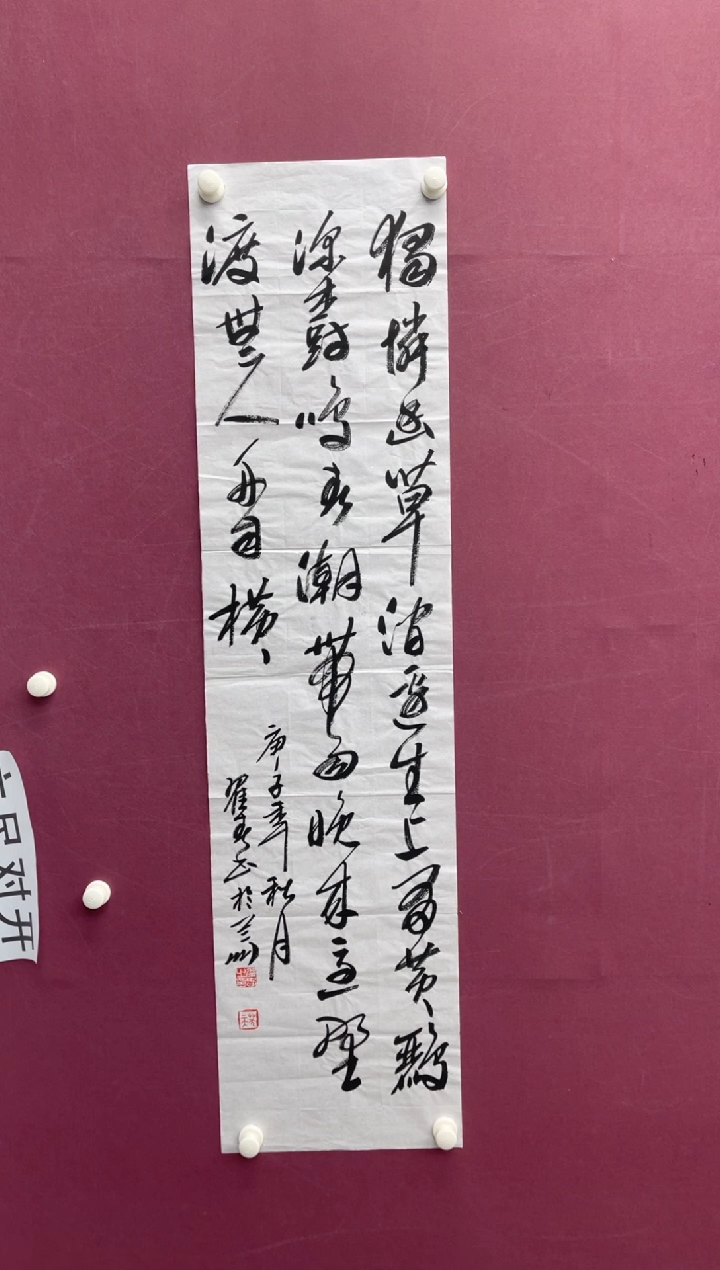 獨憐幽草澗邊生上有黃鸝
深樹鳴春潮帶雨晚來急野
渡無人舟自橫
庚子年秋月
翟書於兰州
尺对开